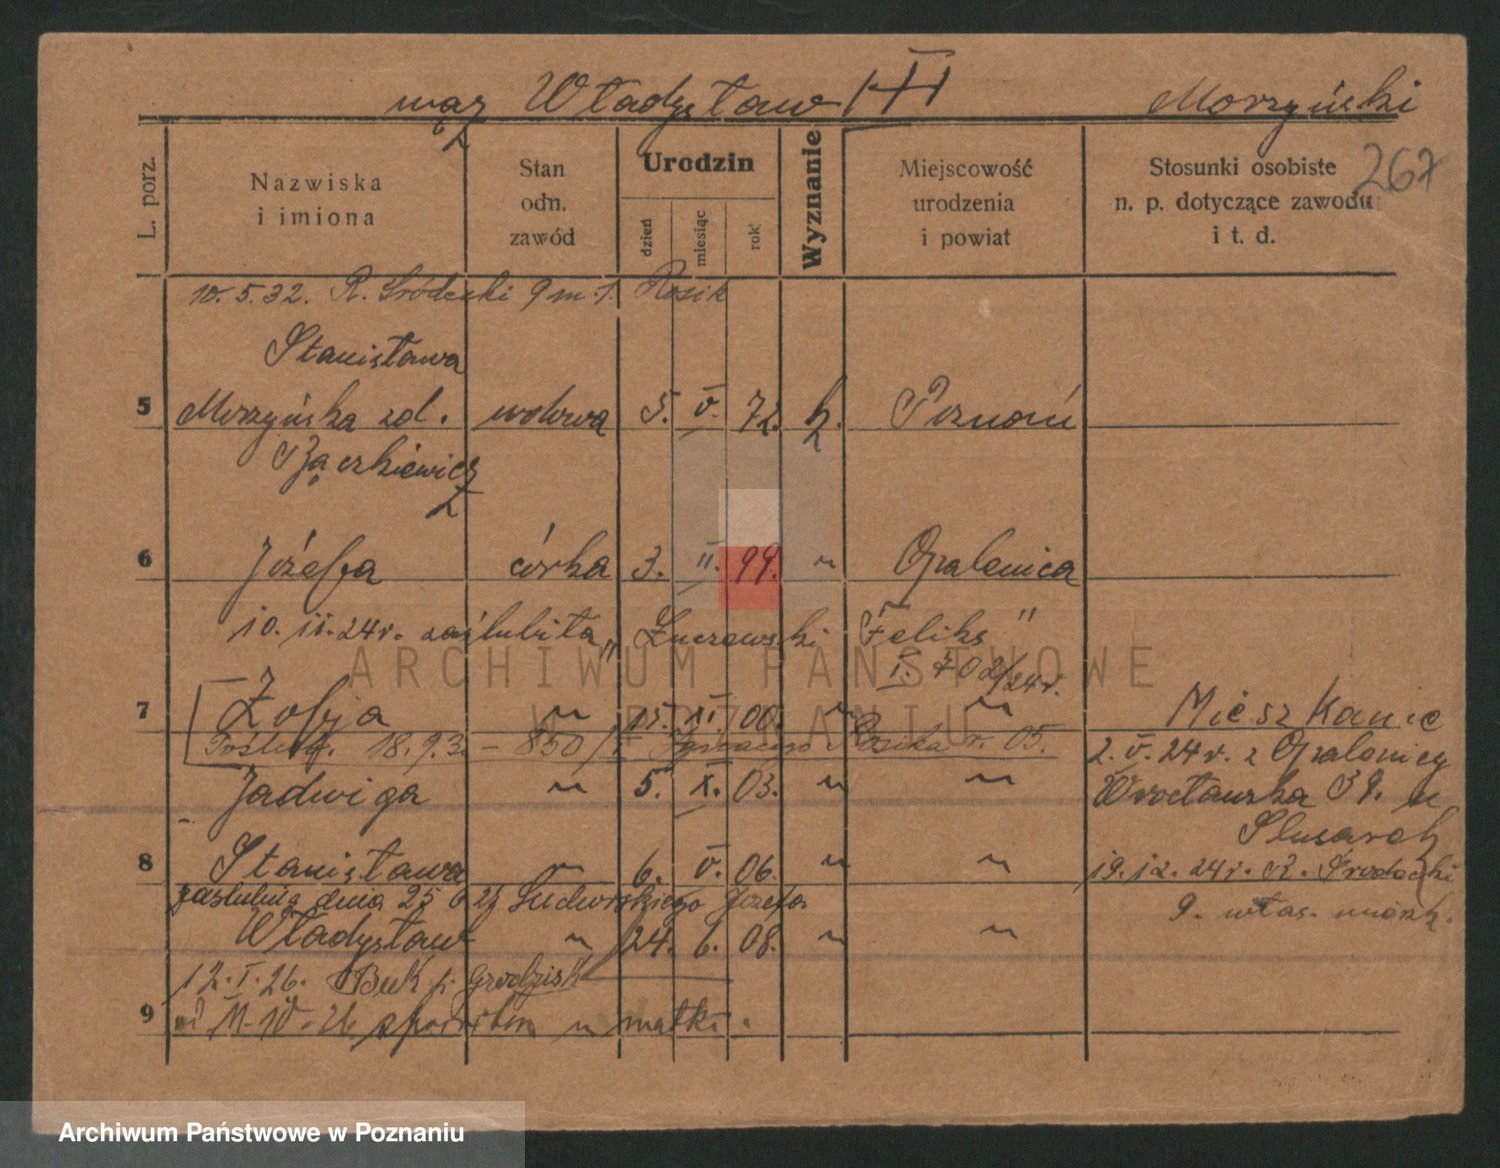 mąż Władysław Morzyński
267
L. porz.
Nazwiska
i imiona
Stan
odn.
zawód
Urodzin
dzień
miesiąc
rok
Wyznanie
Miejscowość
urodzenia
i powiat
Stosunki osobiste
n. p. dotyczące zawodu
i t. d.
10.5.32. R. Śródecki 9 m. 1. Rosik
Stanisława
5 Morzyńska zd. wdowa 5. V. 72. k. Poznań
Bączkiewicz
6 Józefa córka 3. II. 99. " Opalenica
10. II. 24 r. zaślubiła "Żuczewski Feliks"
I. 702/24 r.
7 Zofja " 15. XI. 00. " "
18.9.3 - 850/ Ignacego Rosika r. 05.
Mieszkanie
2. V. 24 r. z Opalenicy
Jadwiga " 5. X. 03. " "
Wrocławska 39. u
Slusarek
8 Stanisława " 6. V. 06. " "
19. 12. 24 r. R. Srodecki
zaślubiła dnia 25 6 27 Ludwiskiego Józefa
9. włas. mieszk.
Władysław " 24. 6. 08. " "
12. I. 26. Buk p. Grodzisk
9 od II-IV-26 u matki.
ARCHIWUM PAŃSTWOWE
W POZNANIU
Archiwum Państwowe w Poznaniu